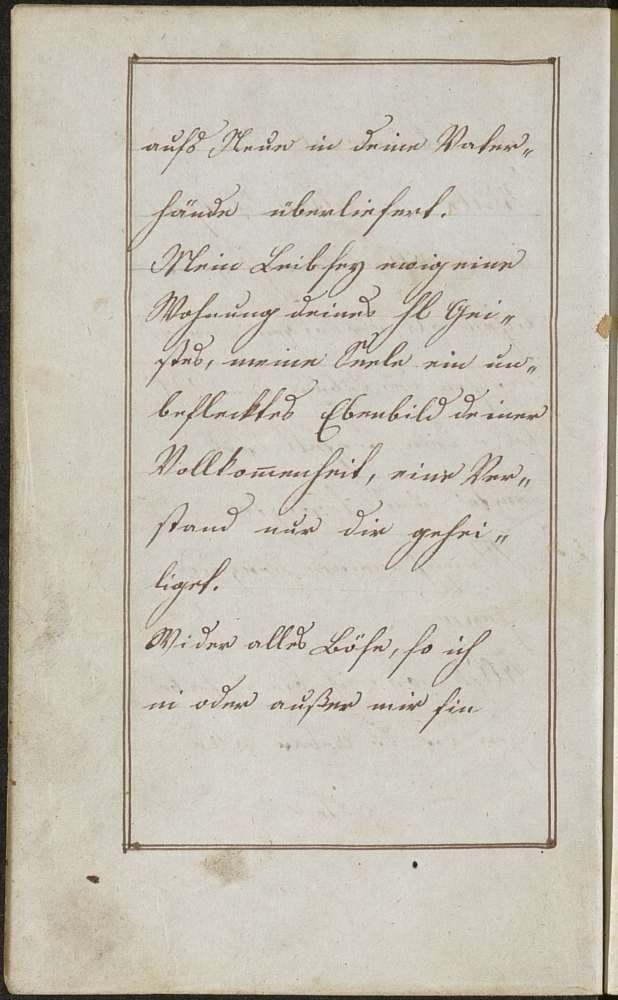 aufs Neue in deine Vater„
hände überliefert.
Mein Leib sey ewig eine
Wohnung deines hl Gei„
stes, meine Seele ein un„
beflecktes Ebenbild deiner
Vollkom̅enheit, eine Ver„
stand nur dir gehei„
liget.
Wider alles Böse, so ich
in oder außer mir hin